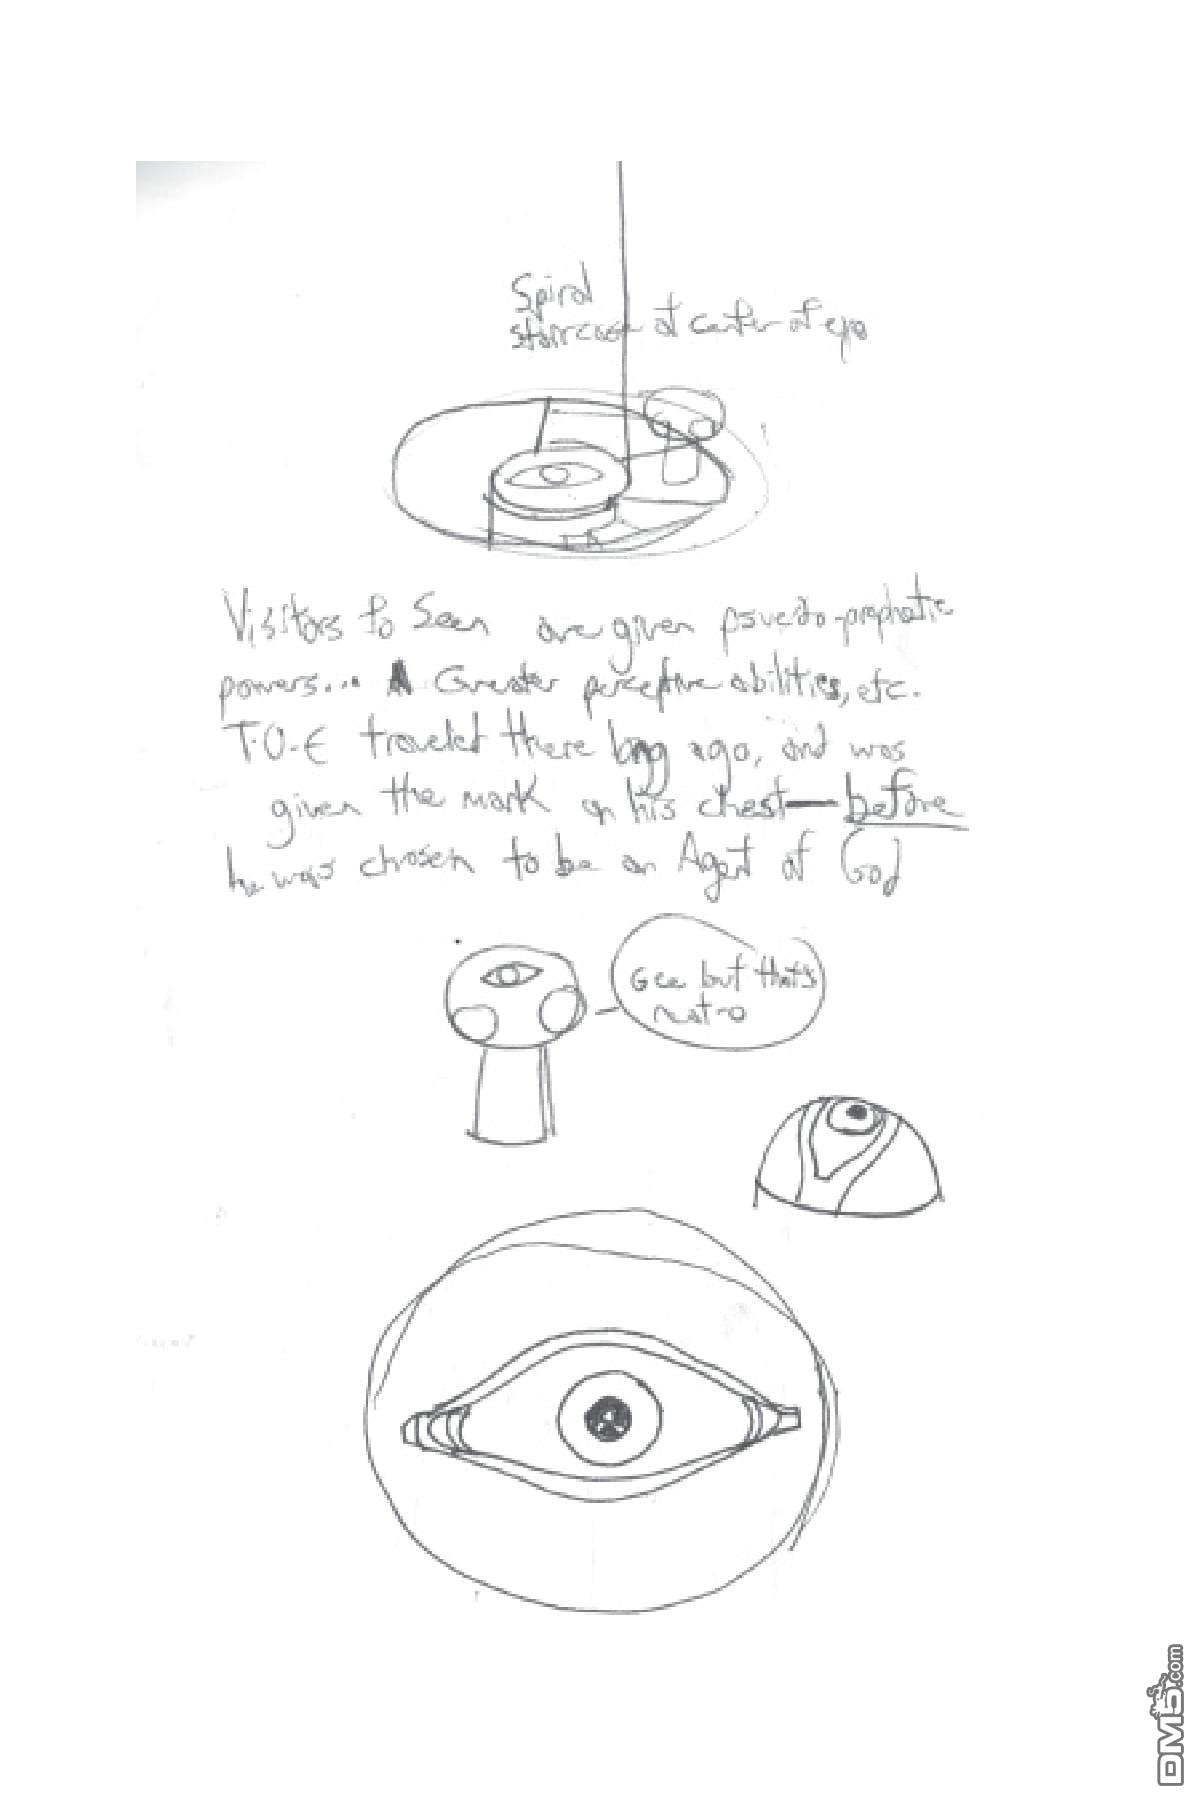 Spiral
staircase at center of eye
Visitors to Seen are given psuedo-prophetic
powers... A Greater perceptive abilities, etc.
T-O-E traveled there long ago, and was
given the mark on his chest—before
he was chosen to be an Agent of God
Gee but that's
neat-o
DM5.com